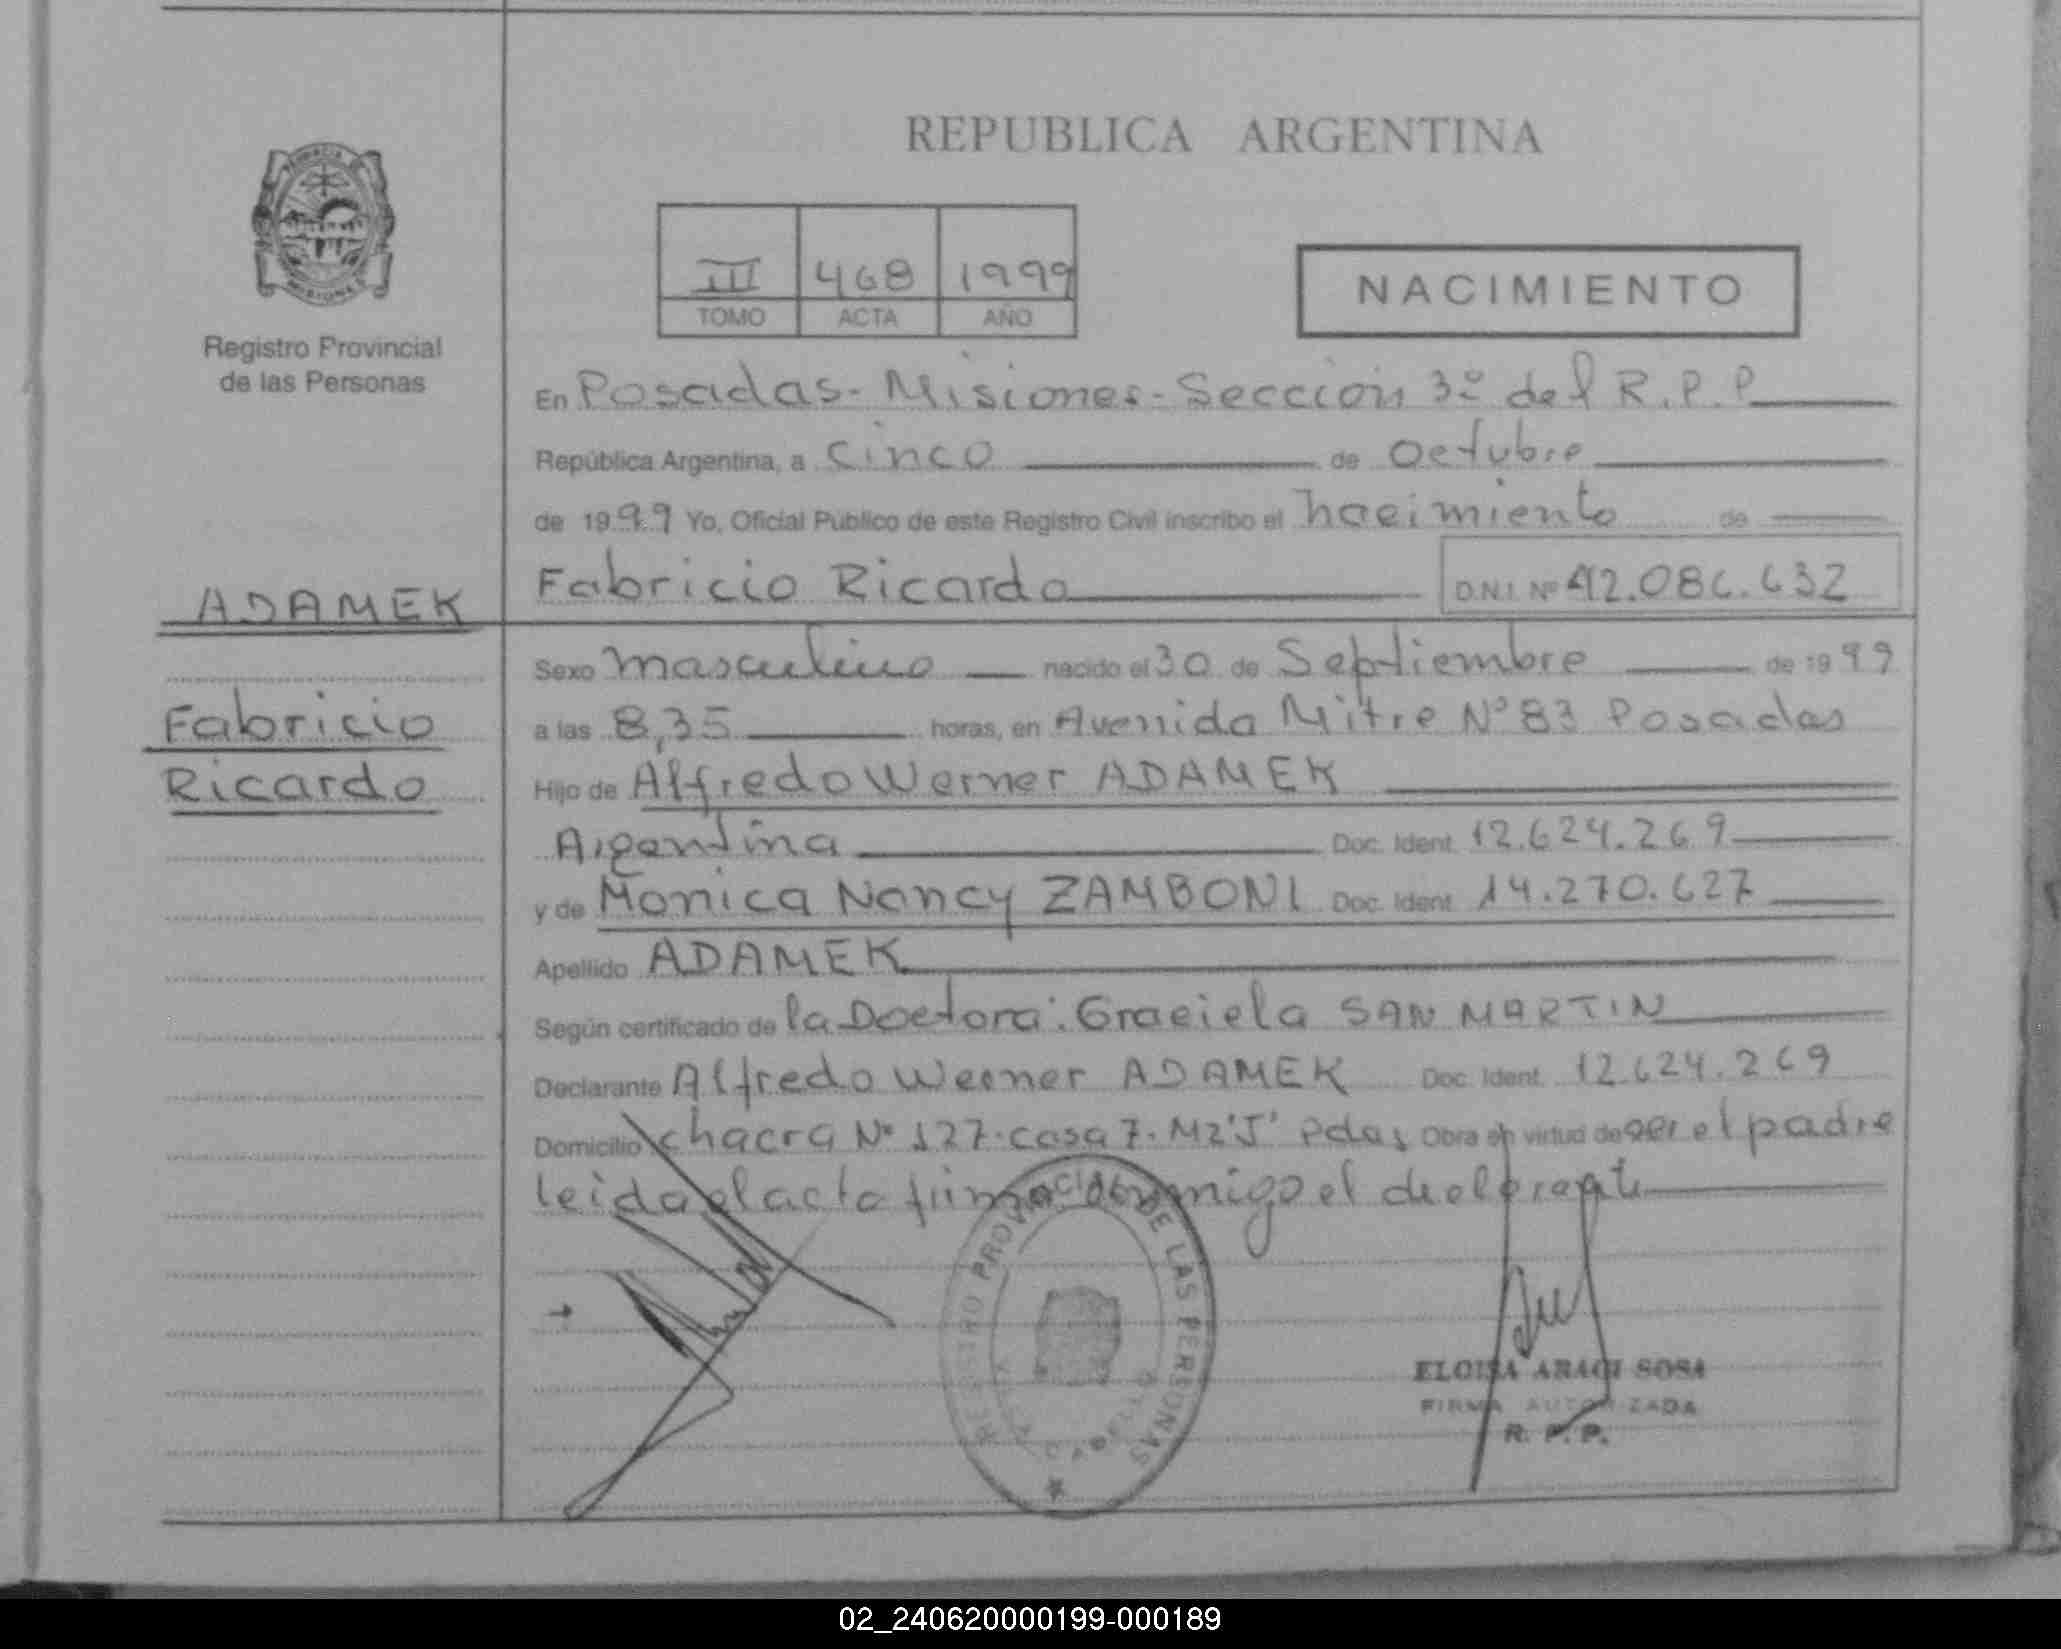 REPUBLICA ARGENTINA
III 468 1999
TOMO ACTA AÑO
NACIMIENTO
Registro Provincial
de las Personas
En Posadas - Misiones - Sección 3º del R.P.P
República Argentina, a cinco de Octubre
de 1999 Yo, Oficial Público de este Registro Civil inscribo el nacimiento de
ADAMEK
Fabricio
Ricardo
Fabricio Ricardo D.N.I. Nº 42.086.632
Sexo masculino nacido el 30 de Septiembre de 1999
a las 8,35 horas, en Avenida Mitre Nº 83 Posadas
Hijo de Alfredo Werner ADAMEK
Argentina Doc. Ident. 12.624.269
y de Monica Nancy ZAMBONI Doc. Ident. 14.270.627
Apellido ADAMEK
Según certificado de la Doctora: Graciela SAN MARTIN
Declarante Alfredo Werner ADAMEK Doc. Ident. 12.624.269
Domicilio chacra Nº 127. casa 7. Mz 'J' Pdas Obra en virtud de ser el padre
leida el acta firma conmigo el
REGISTRO PROVINCIAL DE LAS PERSONAS
ELOISA ARACI SOSA
FIRMA AUTORIZADA
R. P. P.
02_240620000199-000189